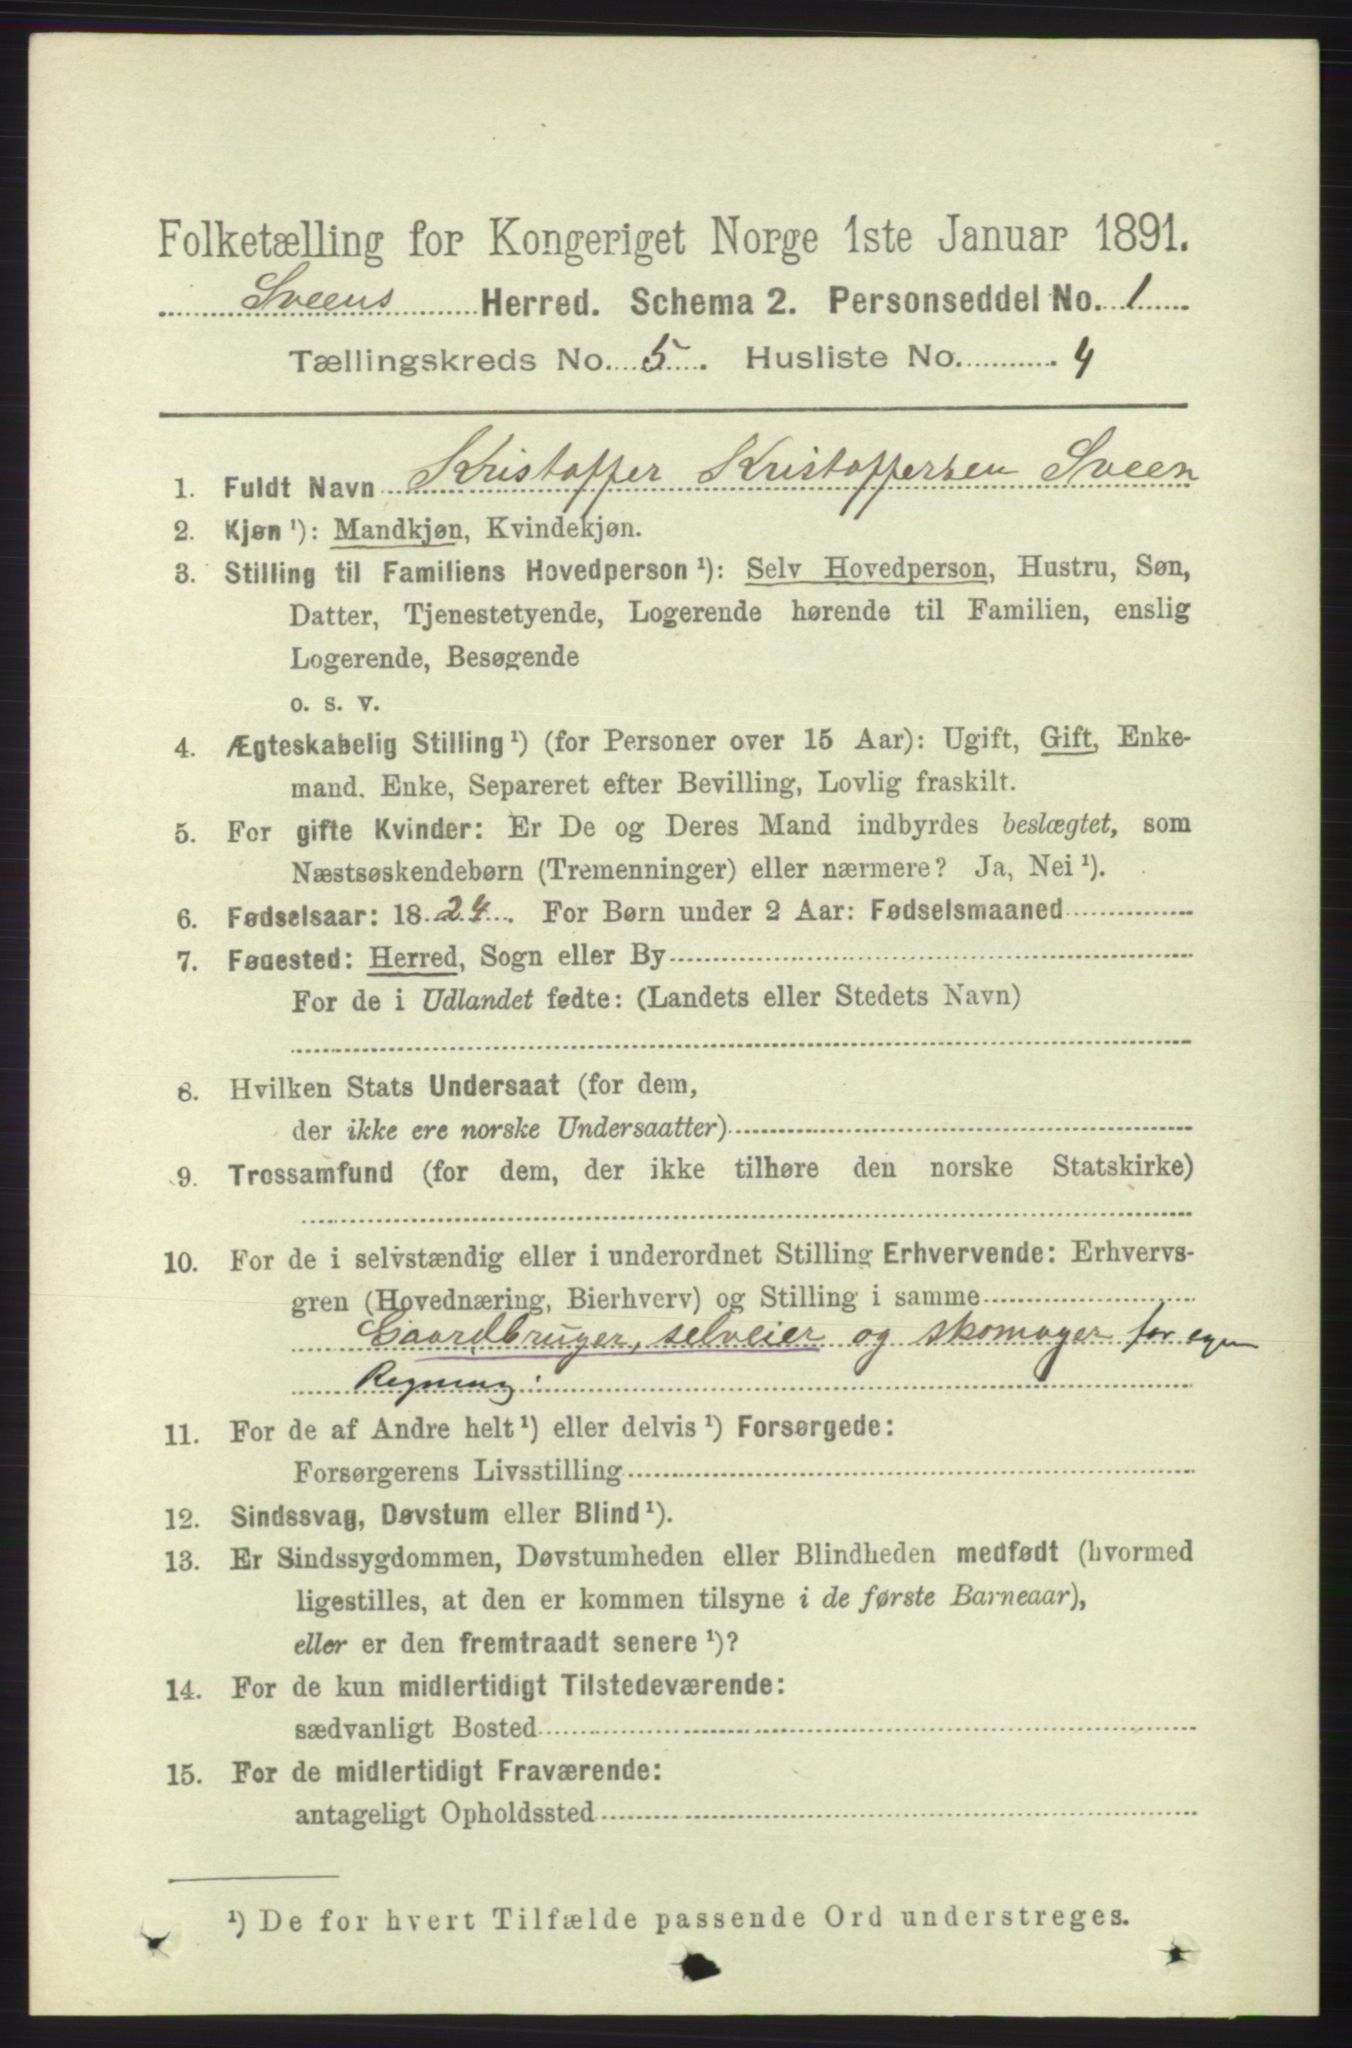 Folketælling for Kongeriget Norge 1ste Januar 1891.
Sveens Herred. Schema 2. Personseddel No. 1
Tællingskreds No. 5. Husliste No. 4
1. Fuldt Navn Kristoffer Kristoffersen Sveen
2. Kjøn ¹): Mandkjøn, Kvindekjøn.
3. Stilling til Familiens Hovedperson ¹): Selv Hovedperson, Hustru, Søn,
Datter, Tjenestetyende, Logerende hørende til Familien, enslig
Logerende, Besøgende
o. s. v.
4. Ægteskabelig Stilling ¹) (for Personer over 15 Aar): Ugift, Gift, Enke-
mand, Enke, Separeret efter Bevilling, Lovlig fraskilt.
5. For gifte Kvinder: Er De og Deres Mand indbyrdes beslægtet, som
Næstsøskendebørn (Tremenninger) eller nærmere? Ja, Nei ¹).
6. Fødselsaar: 1824. For Børn under 2 Aar: Fødselsmaaned
7. Fødested: Herred, Sogn eller By
For de i Udlandet fødte: (Landets eller Stedets Navn)
8. Hvilken Stats Undersaat (for dem,
der ikke ere norske Undersaatter)
9. Trossamfund (for dem, der ikke tilhøre den norske Statskirke)
10. For de i selvstændig eller i underordnet Stilling Erhvervende: Erhvervs-
gren (Hovednæring, Bierhverv) og Stilling i samme
Gaardbruger, selveier og skomager for egen
Regning.
11. For de af Andre helt ¹) eller delvis ¹) Forsørgede:
Forsørgerens Livsstilling
12. Sindssvag, Døvstum eller Blind ¹).
13. Er Sindssygdommen, Døvstumheden eller Blindheden medfødt (hvormed
ligestilles, at den er kommen tilsyne i de første Barneaar),
eller er den fremtraadt senere ¹)?
14. For de kun midlertidigt Tilstedeværende:
sædvanligt Bosted
15. For de midlertidigt Fraværende:
antageligt Opholdssted
¹) De for hvert Tilfælde passende Ord understreges.